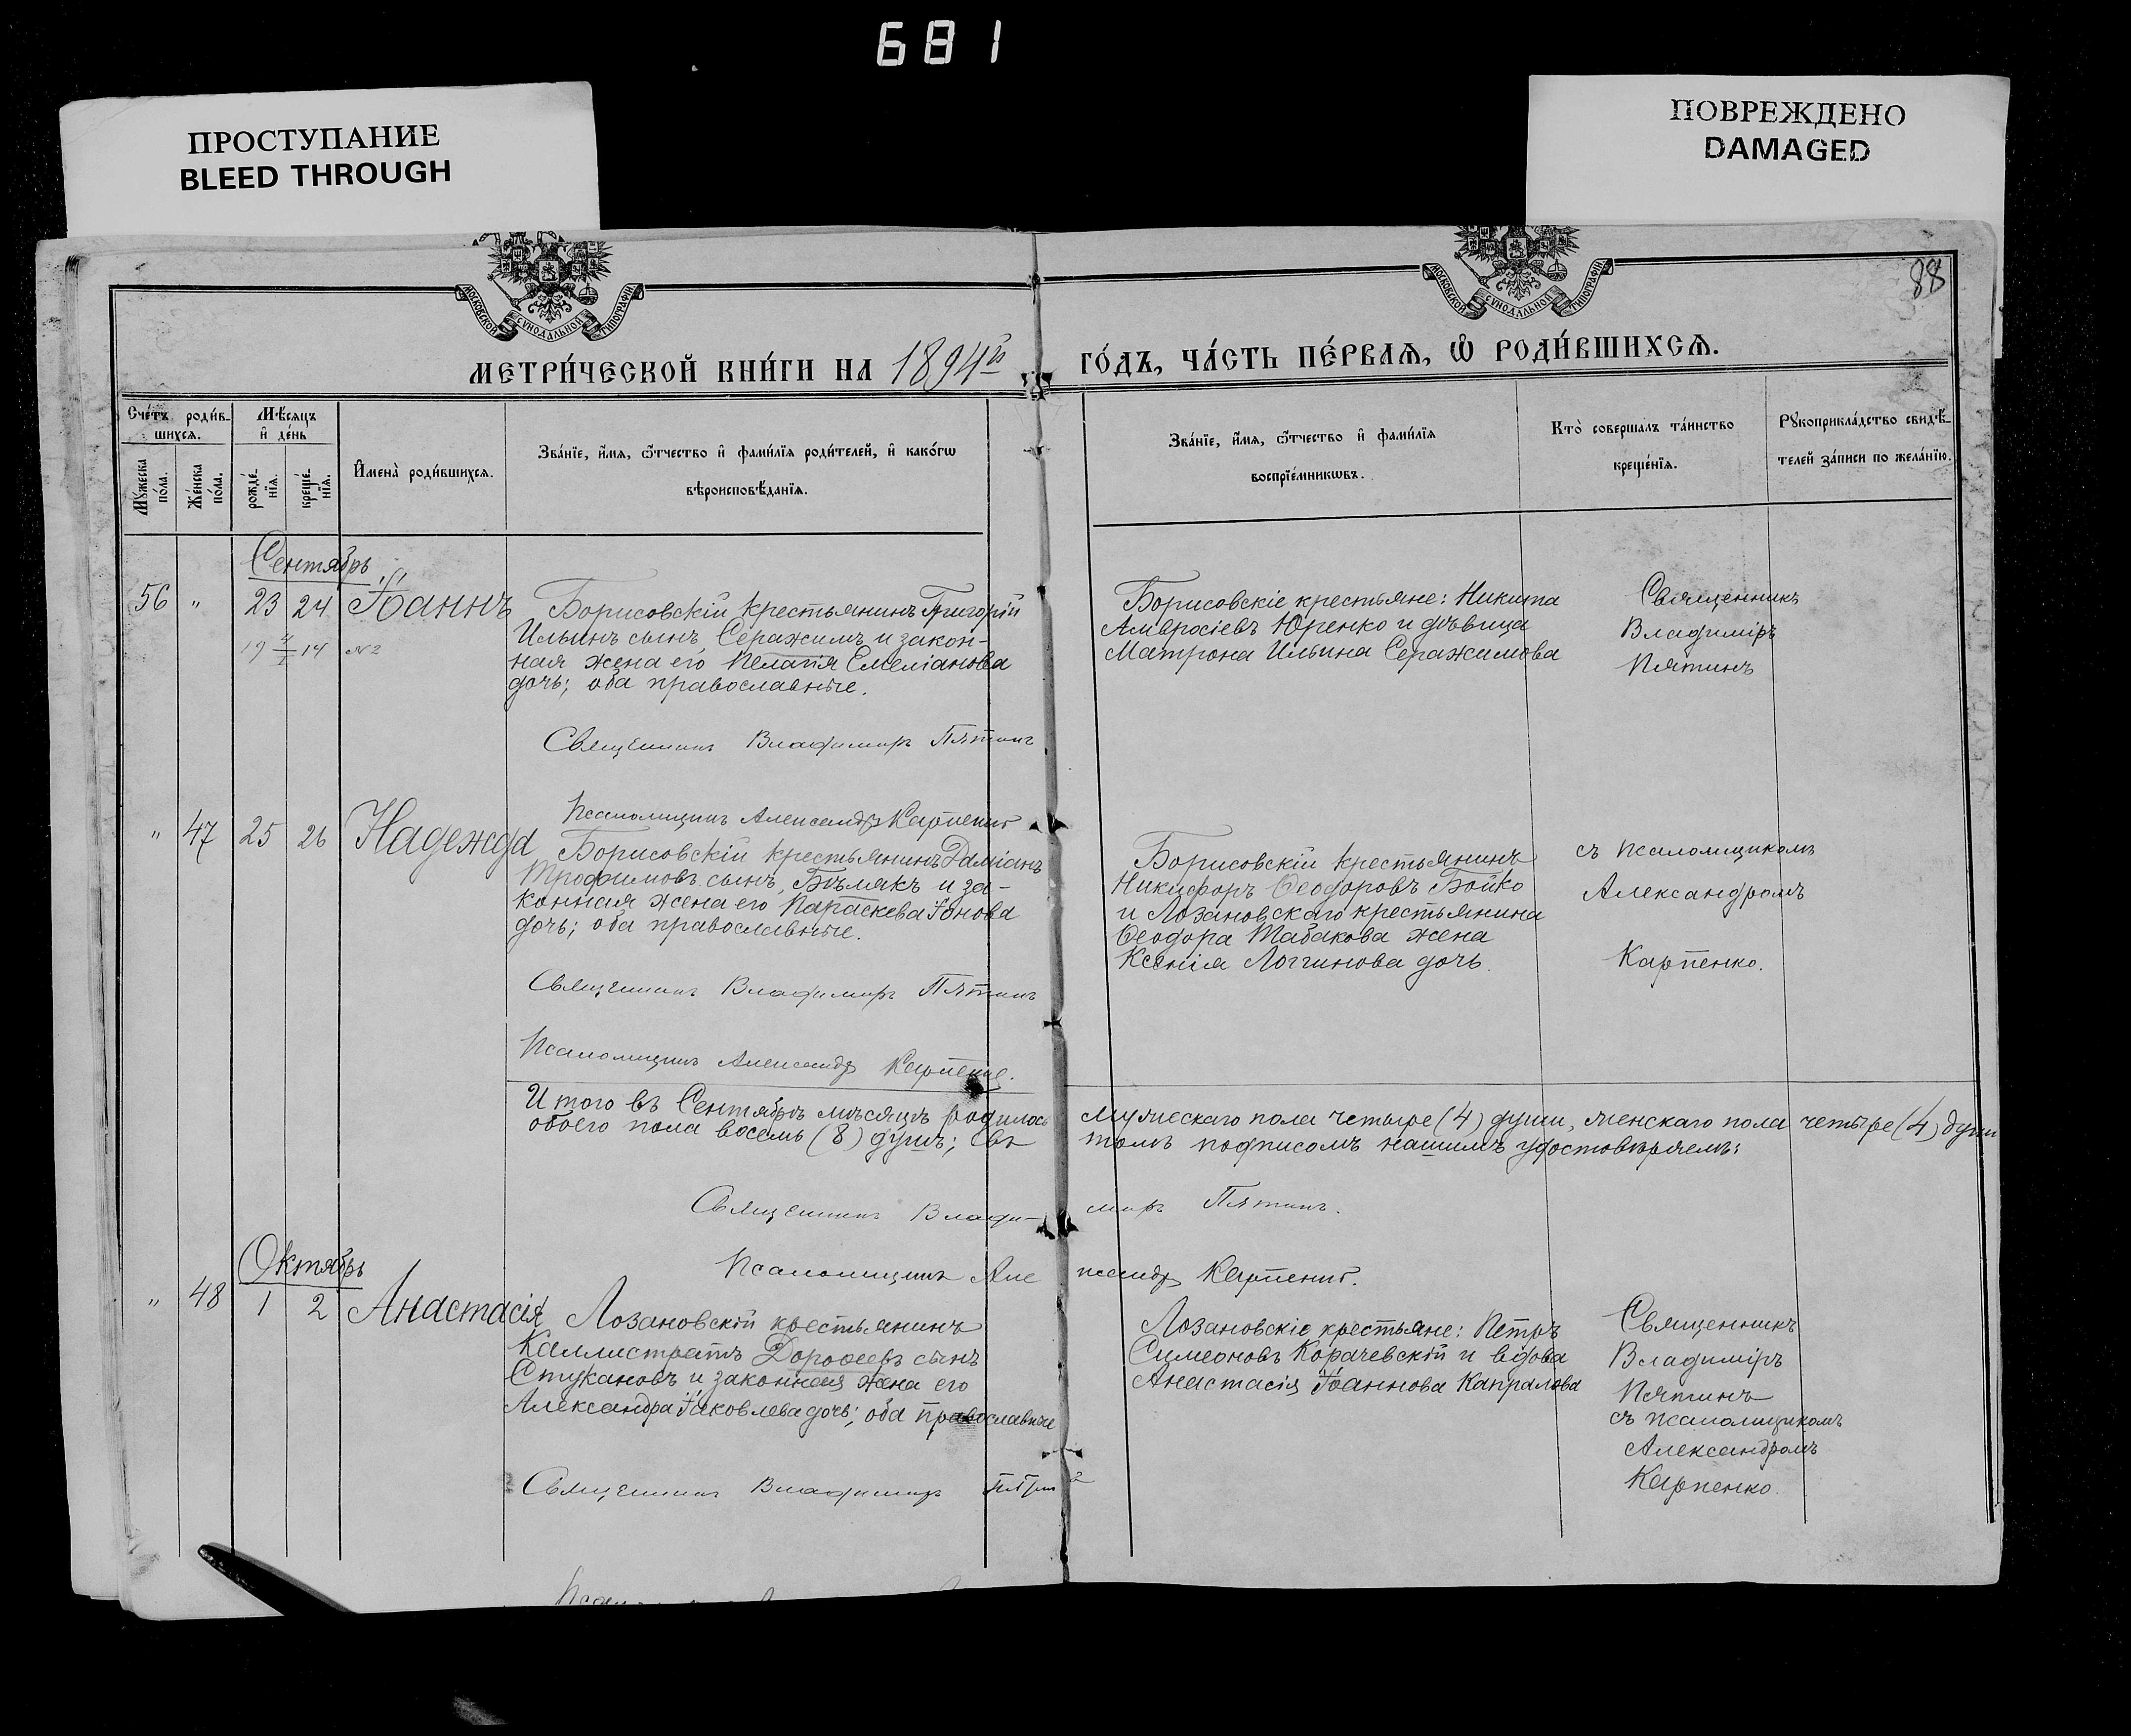 681
ПРОСТУПАНИЕ
BLEED THROUGH
ПОВРЕЖДЕНО
DAMAGED
МОСКОВСКОЙ СѴНОДАЛЬНОЙ ТИПОГРАФІИ
МОСКОВСКОЙ СѴНОДАЛЬНОЙ ТИПОГРАФІИ
88
МЕТРИ́ЧЕСКОЙ КНИ́ГИ НА 1894й
ГО́ДЪ, ЧА́СТЬ ПЕ́РВАЯ, Ѽ РОДИ́ВШИХСЯ.
Сче́тъ роди́в-
шихся.
Мѣ́сяцъ
и҆ де́нь
Мꙋ́жеска
по́ла.
Же́нска
по́ла.
рожде́-
нїя.
креще́-
нїя.
И҆мена̀ роди́вшихся.
Зва́нїе, и҆́мя, ѻ҆́тчество и҆ фами́лїя роди́телей, и҆ како́гѡ
вѣроисповѣ́данїя.
Зва́нїе, и҆́мя, ѻ҆́тчество и҆ фами́лїя
воспрїе́мникѡвъ.
Кто̀ соверша́лъ та́инство
креще́нїя.
Рꙋкоприкла́дство свидѣ́-
телей за́писи по жела́нїю.
Сентябрь
56 " 23 24 Іоаннъ
19 4/I 14 №2
Борисовскій крестьянинъ Григорій
Ильинъ сынъ, Серажимъ и закон-
ная жена его Пелагія Емеліанова
дочь; оба православные.
Священникъ Владимиръ Пятинъ
Псаломщикъ Александръ Карпенко
Борисовскіе крестьяне: Никита
Амвросіевъ Юренко и дѣвица
Матрона Ильина Серажимова
Священникъ
Владиміръ
Пятинъ
" 47 25 26 Надежда
Борисовскій крестьянинъ Даміанъ
Трофимовъ сынъ, Бѣмякъ и за-
конная жена его Параскева Іонова
дочь; оба православные.
Священникъ Владимиръ Пятинъ
Псаломщикъ Александръ Карпенко.
Борисовскій крестьянинъ
Никифоръ Ѳеодоровъ Бойко
и Лозановскаго крестьянина
Ѳеодора Табакова жена
Ксенія Логгинова дочь.
съ псаломщикомъ
Александромъ
Карпенко.
Итого въ Сентябрѣ мѣсяцѣ родилось мужескаго пола четыре (4) души, женскаго пола четыре (4) души
обоего пола восемь (8) душъ; въ томъ подписомъ нашимъ удостовѣряемъ:
Священникъ Владимиръ Пятинъ.
Псаломщикъ Александръ Карпенко.
Октябрь
" 48 1 2 Анастасія
Лозановскій крестьянинъ
Каллистратъ Дороѳеевъ сынъ
Стукановъ и законная жена его
Александра Іаковлева дочь; оба православные
Священникъ Владимиръ Пятинъ
Лозановскіе крестьяне: Петръ
Симеоновъ Корачевскій и вдова
Анастасія Іоаннова Капралова
Священникъ
Владиміръ
Пятинъ
съ псаломщикомъ
Александромъ
Карпенко.